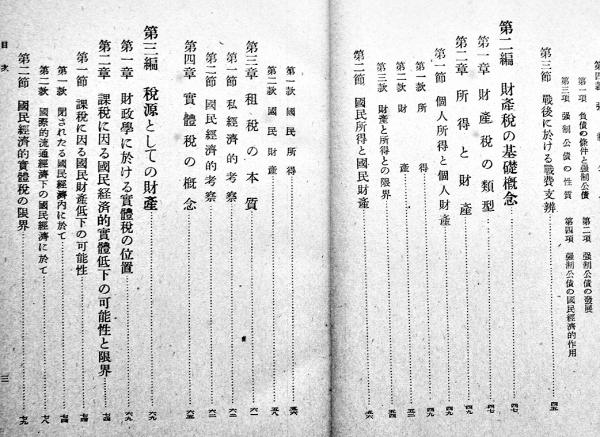 第一項 負債の條件と强制公債
第二項 强制公債の發展
第三項 强制公債の性質
第四項 强制公債の國民經濟的作用
第三節 戰後に於ける戰費支辨 四五
第二編 財產稅の基礎槪念 四七
第一章 財產稅の類型 四七
第二章 所得と財產 四九
第一節 個人所得と個人財產 四九
第一款 所得 四九
第二款 財產 五二
第三款 財產と所得との限界 五四
第二節 國民所得と國民財產 五六
第一款 國民所得 五六
第二款 國民財產 五九
第三章 租稅の本質 六一
第一節 私經濟的考察 六二
第二節 國民經濟的考察 六二
第四章 實體稅の槪念 六五
第三編 稅源としての財產 六九
第一章 財政學に於ける實體稅の位置 六九
第二章 課稅に因る國民經濟的實體低下の可能性と限界 七四
第一節 課稅に因る國民財產低下の可能性 七四
第一款 閉されたる國民經濟內に於て 七四
第二款 國際的流通經濟下の國民經濟に於て 七八
第二節 國民經濟的實體稅の限界 七九
目次
三